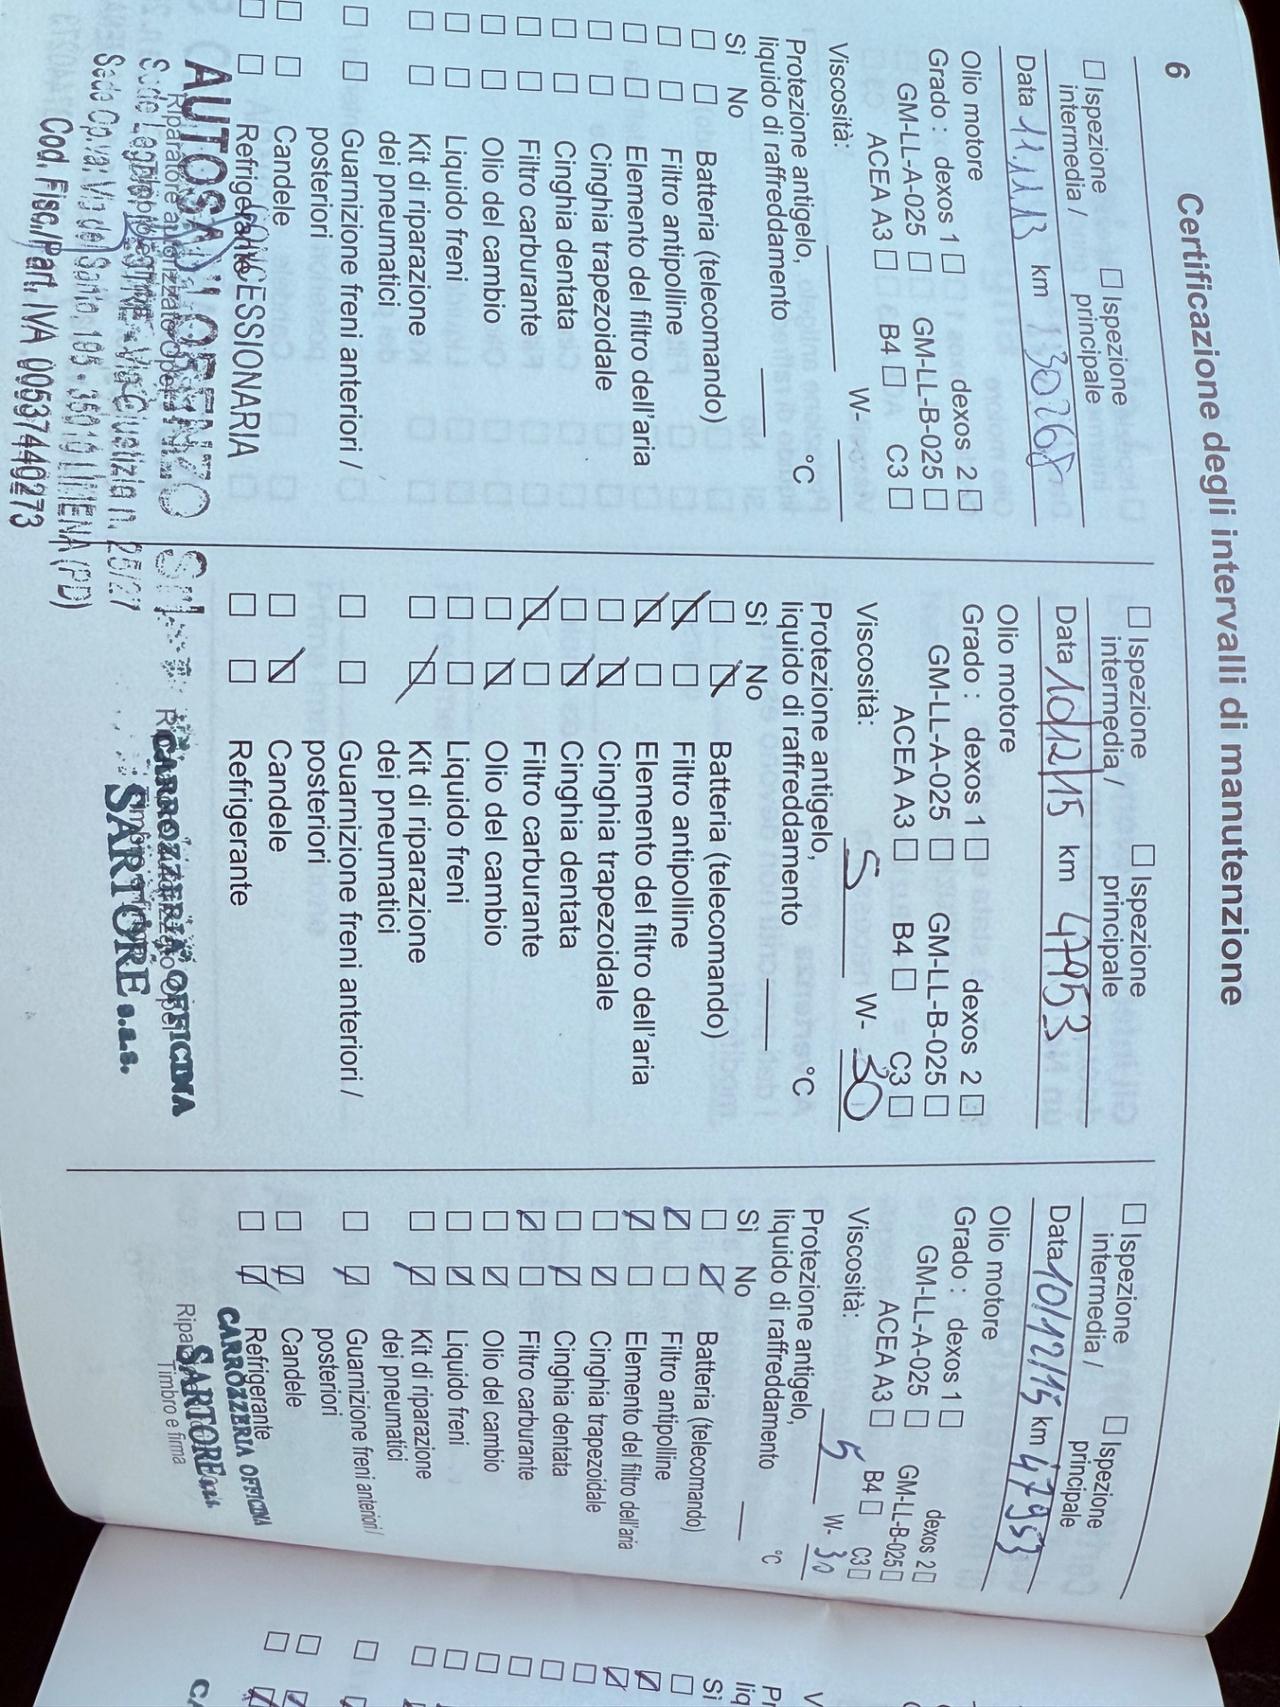 6
Certificazione degli intervalli di manutenzione
Ispezione intermedia /
Ispezione principale
Data 11.11.13 km 30268
Olio motore
Grado : dexos 1 dexos 2
GM-LL-A-025 GM-LL-B-025
ACEA A3 B4 C3
Viscosità: W-
Protezione antigelo,
liquido di raffreddamento °C
Sì No
Batteria (telecomando)
Filtro antipolline
Elemento del filtro dell'aria
Cinghia trapezoidale
Cinghia dentata
Filtro carburante
Olio del cambio
Liquido freni
Kit di riparazione
dei pneumatici
Guarnizione freni anteriori /
posteriori
Candele
Refrigerante
CESSIONARIA
AUTOSA LORENZO Srl
Riparatore autorizzato Opel
Sede Leg. Via Giustizia n. 25/27
Sede Op.va: Via del Santo, 195 - 35010 LIMENA (PD)
Cod. Fisc./Part. IVA 00537440273
Ispezione intermedia /
Ispezione principale
Data 10/12/15 km 47953
Olio motore
Grado : dexos 1 dexos 2
GM-LL-A-025 GM-LL-B-025
ACEA A3 B4 C3
Viscosità: 5 W- 30
Protezione antigelo,
liquido di raffreddamento °C
Sì No
Batteria (telecomando)
Filtro antipolline
Elemento del filtro dell'aria
Cinghia trapezoidale
Cinghia dentata
Filtro carburante
Olio del cambio
Liquido freni
Kit di riparazione
dei pneumatici
Guarnizione freni anteriori /
posteriori
Candele
Refrigerante
CARROZZERIA OFFICINA
SARTORE s.a.s.
Ispezione intermedia /
Ispezione principale
Data 10/12/15 km 47953
Olio motore
Grado : dexos 1 dexos 2
GM-LL-A-025 GM-LL-B-025
ACEA A3 B4 C3
Viscosità: 5 W- 30
Protezione antigelo,
liquido di raffreddamento °C
Sì No
Batteria (telecomando)
Filtro antipolline
Elemento del filtro dell'aria
Cinghia trapezoidale
Cinghia dentata
Filtro carburante
Olio del cambio
Liquido freni
Kit di riparazione
dei pneumatici
Guarnizione freni anteriori /
posteriori
Candele
Refrigerante
CARROZZERIA OFFICINA
SARTORE s.a.s.
Timbro e firma
Sì